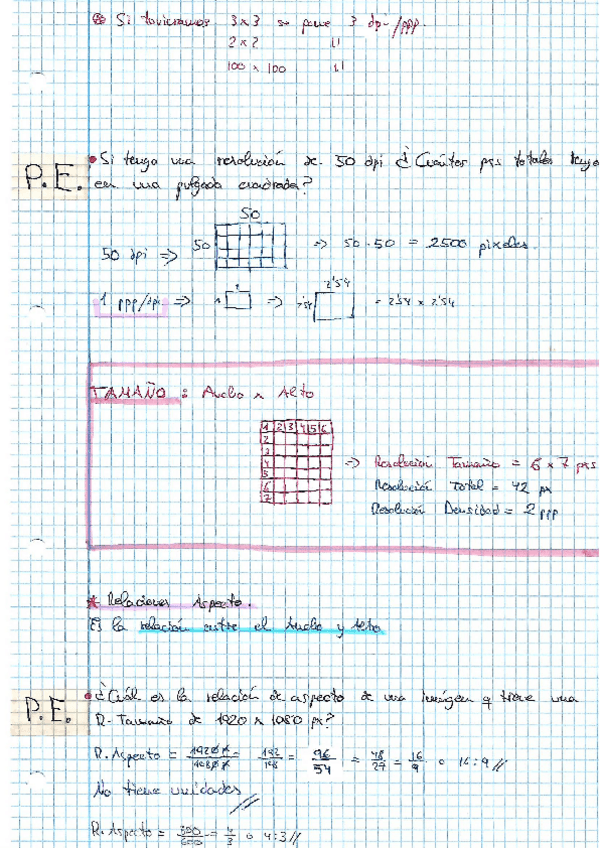 Si tuvieramos 3x3 se pone 3 dpi/ppp.
2x2 "
100x100 "
P.E.
• Si tengo una resolución de 50 dpi ¿Cuántos pxs totales tengo
en una pulgada cuadrada?
50
50 dpi => 50 => 50·50 = 2500 pixeles.
2'54
1 ppp/dpi => 1 1 => 2'54 = 2'54 x 2'54
TAMAÑO: Ancho x Alto
1 2 3 4 5 6
2
3
4
5
6
7
=> Resolución Tamaño = 6x7 pxs
Resolución Total = 42 px
Resolución Densidad = 2 ppp
* Relaciones Aspecto.
Es la relación entre el Ancho y Alto
P.E.
• ¿Cuál es la relación de aspecto de una imágen q tiene una
R. Tamaño de 1920 x 1080 px?
R. Aspecto = 1920/1080 = 192/108 = 96/54 = 48/27 = 16/9 o 16:9//
No tiene unidades //
R. Aspecto = 800/600 = 4/3 o 4:3//